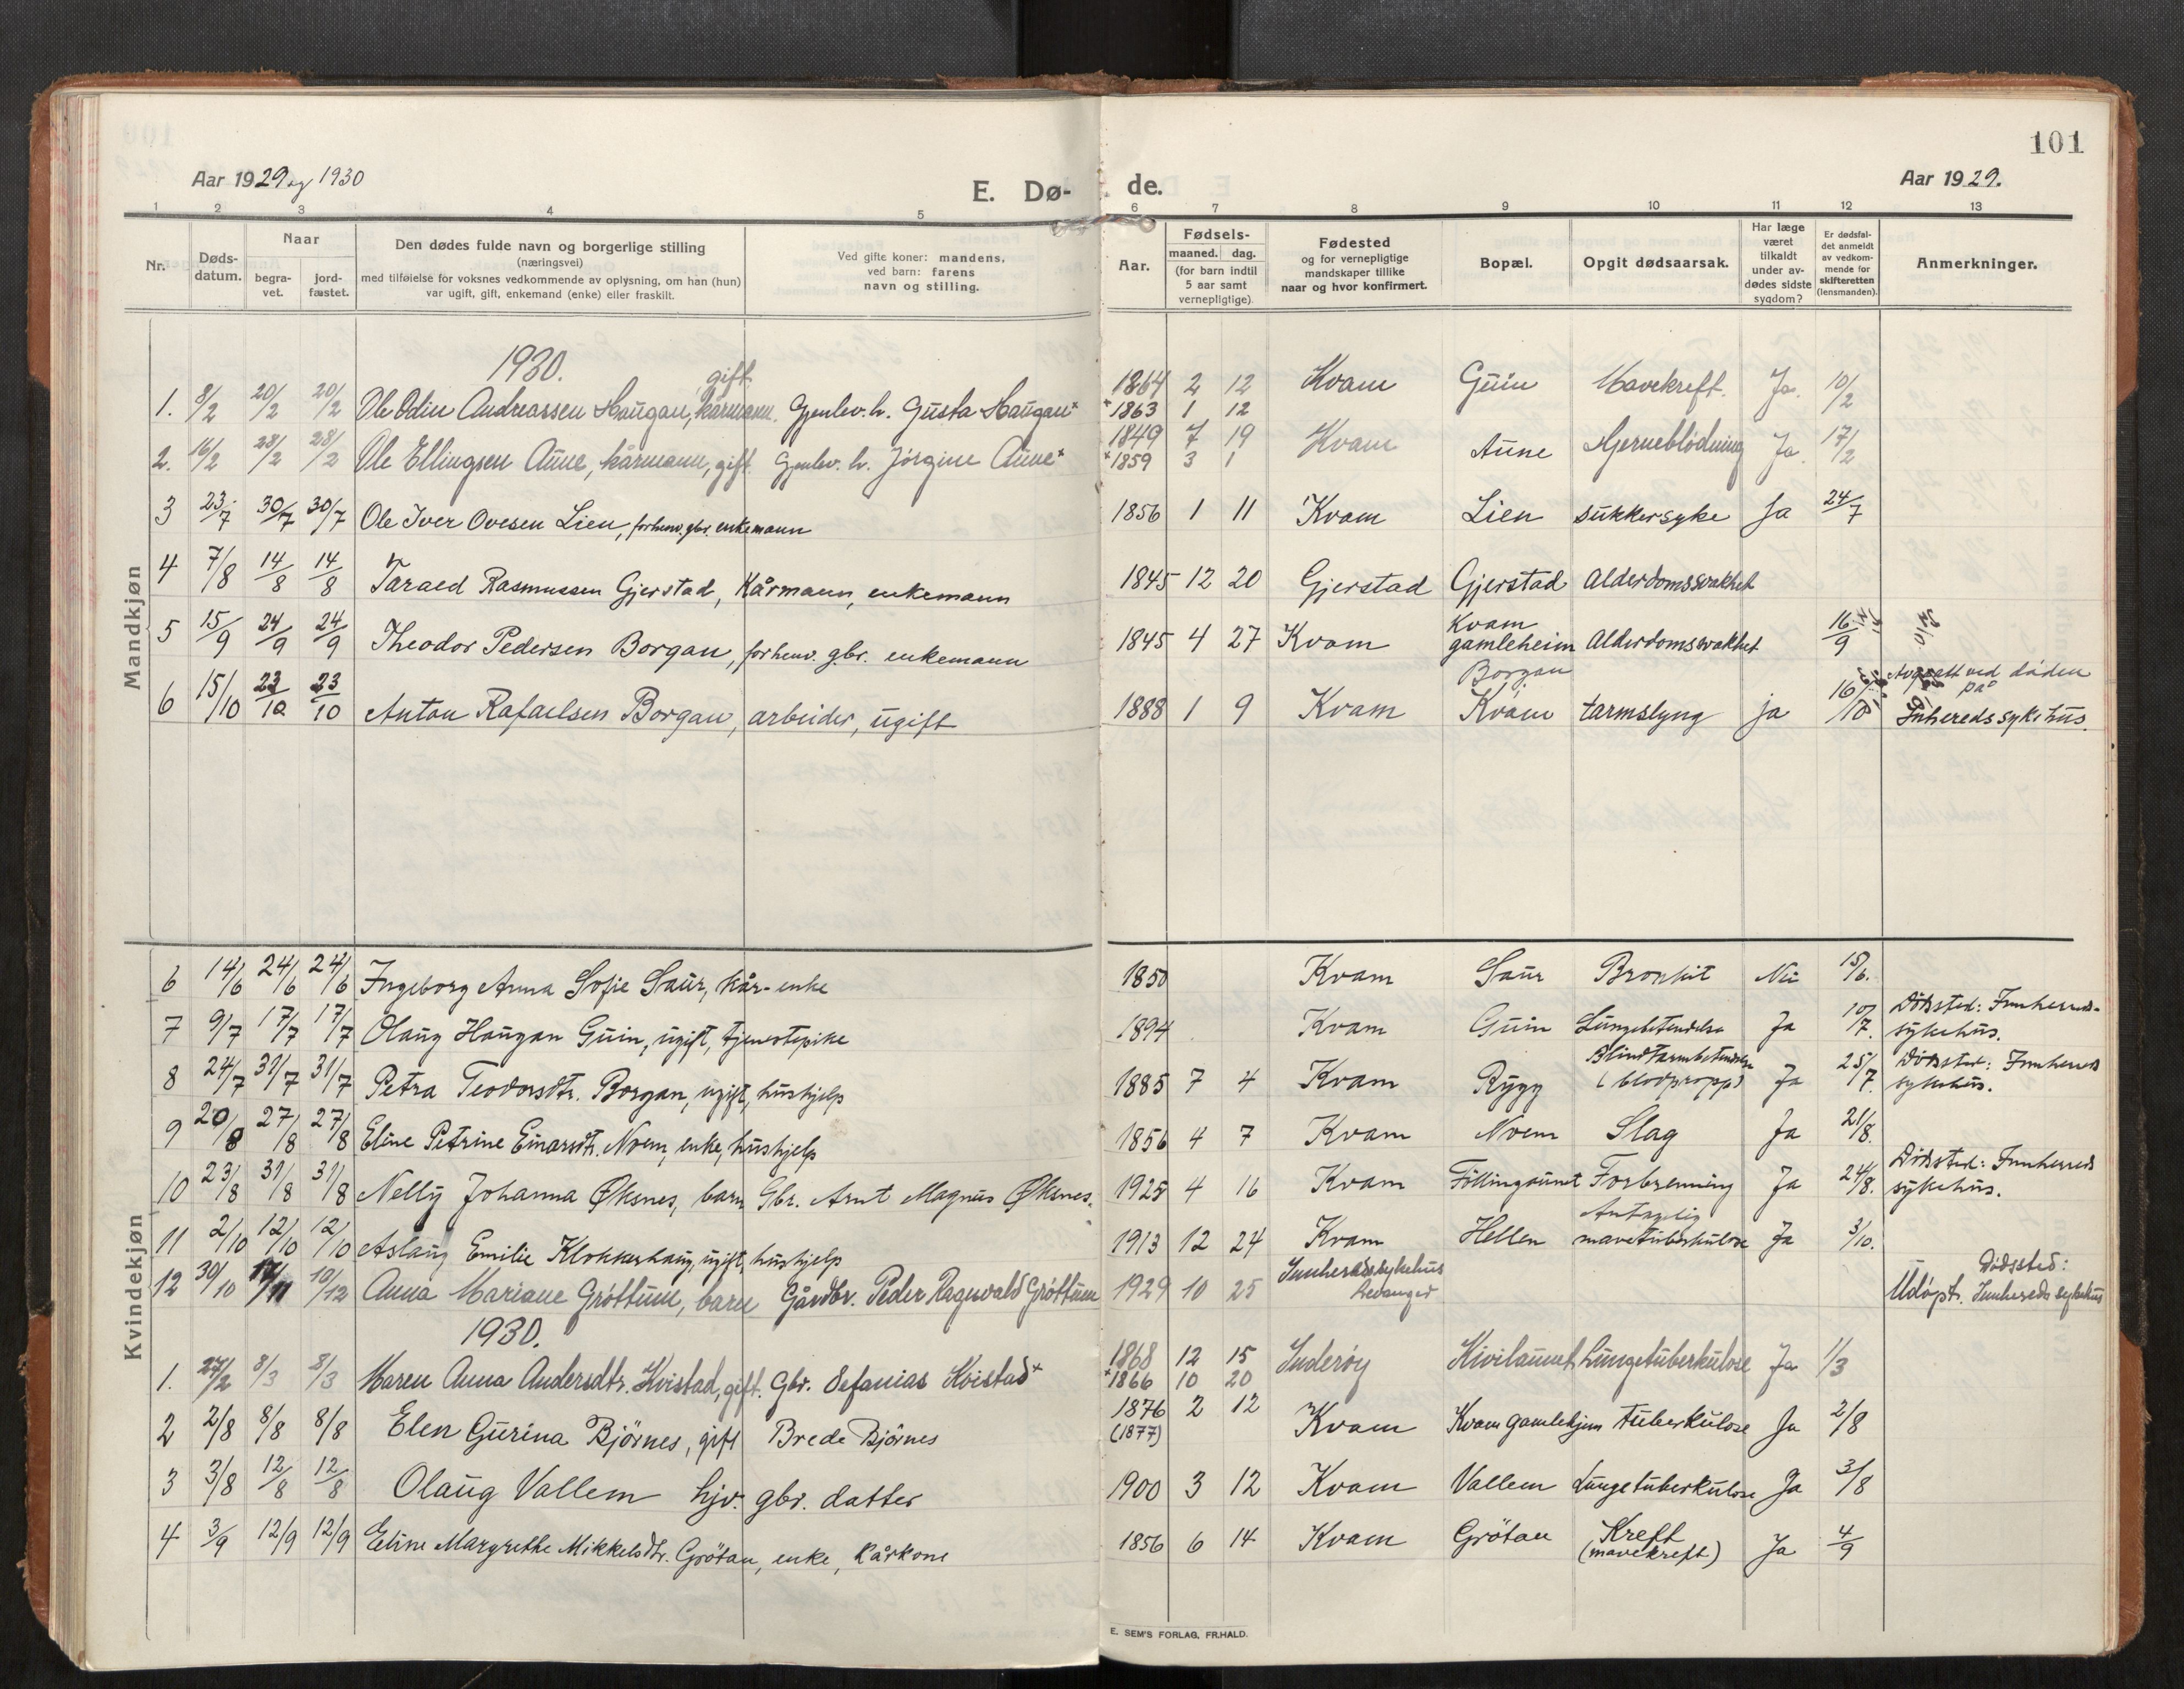 101
Aar 1929 og 1930
E. Dø-
de.
Aar 1929.
1 2 3 4 5 6 7 8 9 10 11 12 13
Nr.
Døds-
datum.
Naar
begra-
vet.
jord-
fæstet.
Den dødes fulde navn og borgerlige stilling
(næringsvei)
med tilføielse for voksnes vedkommende av oplysning, om han (hun)
var ugift, gift, enkemand (enke) eller fraskilt.
Ved gifte koner: mandens,
ved barn: farens
navn og stilling.
Aar.
Fødsels-
maaned. dag.
(for barn indtil
5 aar samt
vernepligtige).
Fødested
og for vernepligtige
mandskaper tillike
naar og hvor konfirmert.
Bopæl.
Opgit dødsaarsak.
Har læge
været
tilkaldt
under av-
dødes sidste
sygdom?
Er dødsfal-
det anmeldt
av vedkom-
mende for
skifteretten
(lensmanden).
Anmerkninger.
Mandkjøn
1930.
gift
1. 8/2 20/2 20/2 Ole Odin Andreassen Haugan, kårmann. Gjenlev. h. Gusta Haugan× 1864 2 12 Kvam Guin Mavekreft. Ja. 10/2
×1863 1 12
2. 16/2 28/2 28/2 Ole Ellingsen Aune, kårmann, gift. Gjenlev. h. Jørgine Aune× 1849 7 19 Kvam Aune Hjerneblødning Ja. 17/2
×1859 3 1
3 23/7 30/7 30/7 Ole Iver Ovesen Lien, forhenv. gbr. enkemann 1856 1 11 Kvam Lien sukkersyke Ja 24/7
4 7/8 14/8 14/8 Tarald Rasmussen Gjerstad, Kårmann, enkemann 1845 12 20 Gjerstad Gjerstad Alderdomssvakhet
5 15/9 24/9 24/9 Theodor Pedersen Borgan, forhenv. gbr. enkemann 1845 4 27 Kvam Kvam gamleheim Alderdomssvakhet 16/9
6 15/10 23/10 23/10 Anton Rafaelsen Borgan, arbeider, ugift 1888 1 9 Kvam Borgan Kvam tarmslyng ja 16/10 Avgått ved døden
på
Inhereds sykehus.
Kvindekjøn
6 14/6 24/6 24/6 Ingeborg Anna Sofie Saur, kår-enke 1850 Kvam Saur Bronkit Nei 15/6.
7 9/7 17/7 17/7 Olaug Haugan Guin, ugift, tjenestepike 1894 Kvam Guin Lungebetendelse Ja 10/7. Dødssted: Innhereds-
sykehus.
8 24/7 31/7 31/7 Petra Teodorsdtr. Borgan, ugift, hushjelp 1885 7 4 Kvam Rygg Blindtarmbetendelse
(blodpropp) Ja 25/7. Dødssted: Innhereds
sykehus.
9 20/8 27/8 27/8 Eline Petrine Einarsdtr. Nvem, enke, hushjelp 1856 4 7 Kvam Nvem Slag Ja 21/8.
10 23/8 31/8 31/8 Nelly Johanna Øksnes, barn Gbr. Arnt Magnus Øksnes. 1925 4 16 Kvam Föllingaunet Forbrenning Ja 24/8. Dødssted: Innhereds
sykehus.
11 2/10 12/10 12/10 Aslaug Emilie Klokkerhaug, ugift, hushjelp 1913 12 24 Kvam Hellem Antagelig
mavetuberkulose Ja 3/10.
12 30/10 17/11 10/12 Anna Mariane Grøttum, barn Gårdbr. Peder Ragnvald Grøttum 1929 10 25 Innheredssykehus
Levanger Dødssted:
Udøpt. Innhereds sykehus
1930.
1. 27/2 8/3 8/3 Maren Anna Andersdtr. Kvistad, gift. Gbr. Sefanias Kvistad× 1868 12 15 Inderøy Hivilaunet Lungetuberkulose Ja 1/3
×1866 10 20
2 2/8 8/8 8/8 Elen Gurina Bjørnes, gift Brede Bjørnes 1876 2 12 Kvam Kvam gamlehjem tuberkulose Ja 2/8
(1877)
3 3/8 12/8 12/8 Olaug Vallem hjv. gbr. datter 1900 3 12 Kvam Vallem Lungetuberkulose Ja 3/8
4 3/9 12/9 12/9 Eline Margrethe Mikkelsdtr. Grötan, enke, Kårkone 1856 6 14 Kvam Grötan Kreft
(mavekreft) Ja 4/9
E. SEM'S FORLAG, FR.HALD.